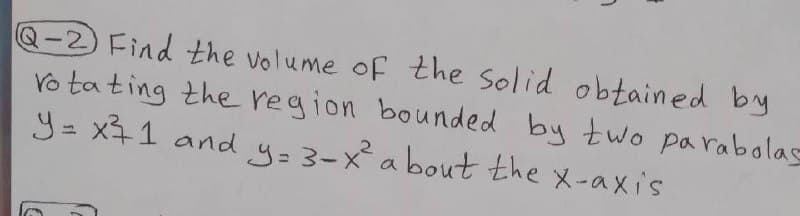 Q-2 Find the volume of the solid obtained by
rotating the region bounded by two parabolas
y = x²+1 and y = 3-x² about the x-axis